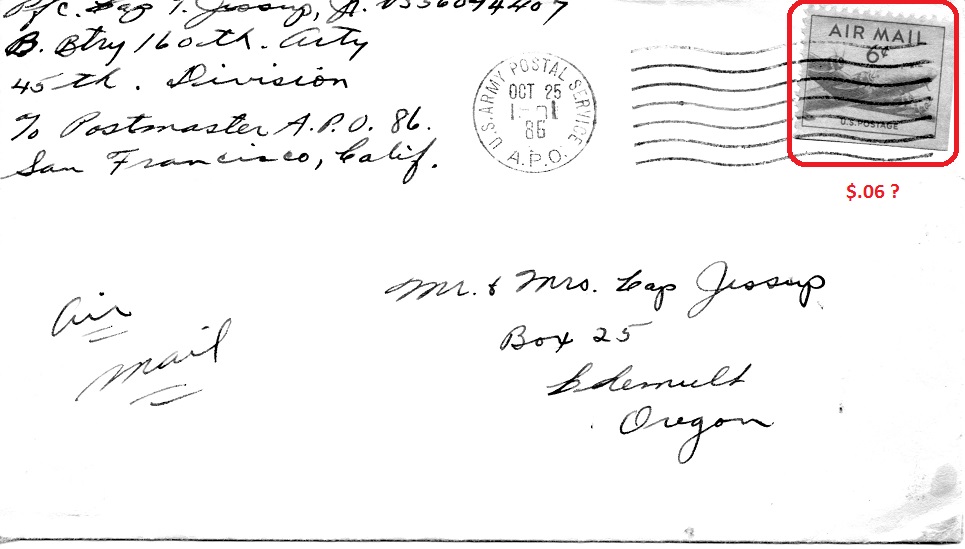 Pfc. Cap T. Jessup, Jr.
B. Btry 160th. Arty
45th. Division
% Postmaster A.P.O. 86.
San Francisco, Calif.
U.S. ARMY POSTAL SERVICE
OCT 25
86
A.P.O.
AIR MAIL
6¢
U.S. POSTAGE
$.06 ?
Air
Mail
Mr. & Mrs. Cap Jessup
Box 25
Chemult
Oregon